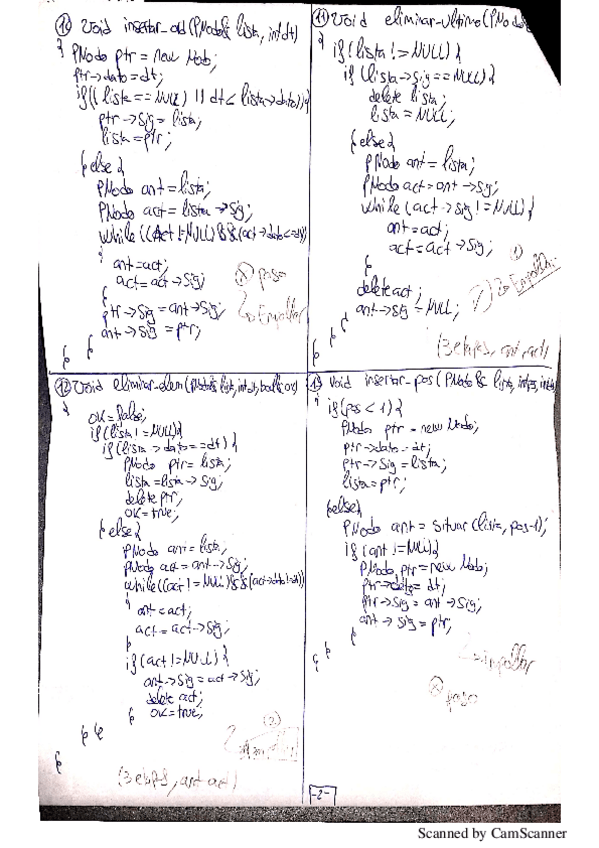 ⑩ void insertar_ord (PNodo& lista, int dt)
{ PNodo ptr = new Nodo;
ptr->dato = dt;
if(( lista == NULL) || dt < lista->dato)){
ptr->sig = lista;
lista = ptr;
} else {
PNodo ant = lista;
PNodo act = lista->sig;
while ((act != NULL) && (act->dato <= dt))
{
ant = act;
act = act->sig;
}
ptr->sig = ant->sig;
ant->sig = ptr;
}
}
paso
Empollar
⑪ void eliminar_ultimo (PNodo&
{
if (lista != NULL) {
if (lista->sig == NULL) {
delete lista;
lista = NULL;
} else {
PNodo ant = lista;
PNodo act = ant->sig;
while (act->sig != NULL) {
ant = act;
act = act->sig;
}
delete act;
ant->sig = NULL;
}
}
}
(1)
(3 etapas, ant, act)
⑫ void eliminar_elem (PNodo& list, int dt, bool& ok)
{
ok = false;
if (lista != NULL) {
if (lista->dato == dt) {
PNodo ptr = lista;
lista = lista->sig;
delete ptr;
ok = true;
} else {
PNodo ant = lista;
PNodo act = ant->sig;
while ((act != NULL) && (act->dato != dt))
{
ant = act;
act = act->sig;
}
if (act != NULL) {
ant->sig = act->sig;
delete act;
} ok = true;
} }
}
(2)
(3 etapas, ant act)
⑬ void insertar_pos (PNodo& lista, int pos, int dt)
{
if (pos < 1) {
PNodo ptr = new Nodo;
ptr->dato = dt;
ptr->sig = lista;
lista = ptr;
} else {
PNodo ant = situar (lista, pos-1);
if (ant != NULL) {
PNodo ptr = new Nodo;
ptr->dato = dt;
ptr->sig = ant->sig;
ant->sig = ptr;
}
}
}
empollar
paso
-2-
Scanned by CamScanner